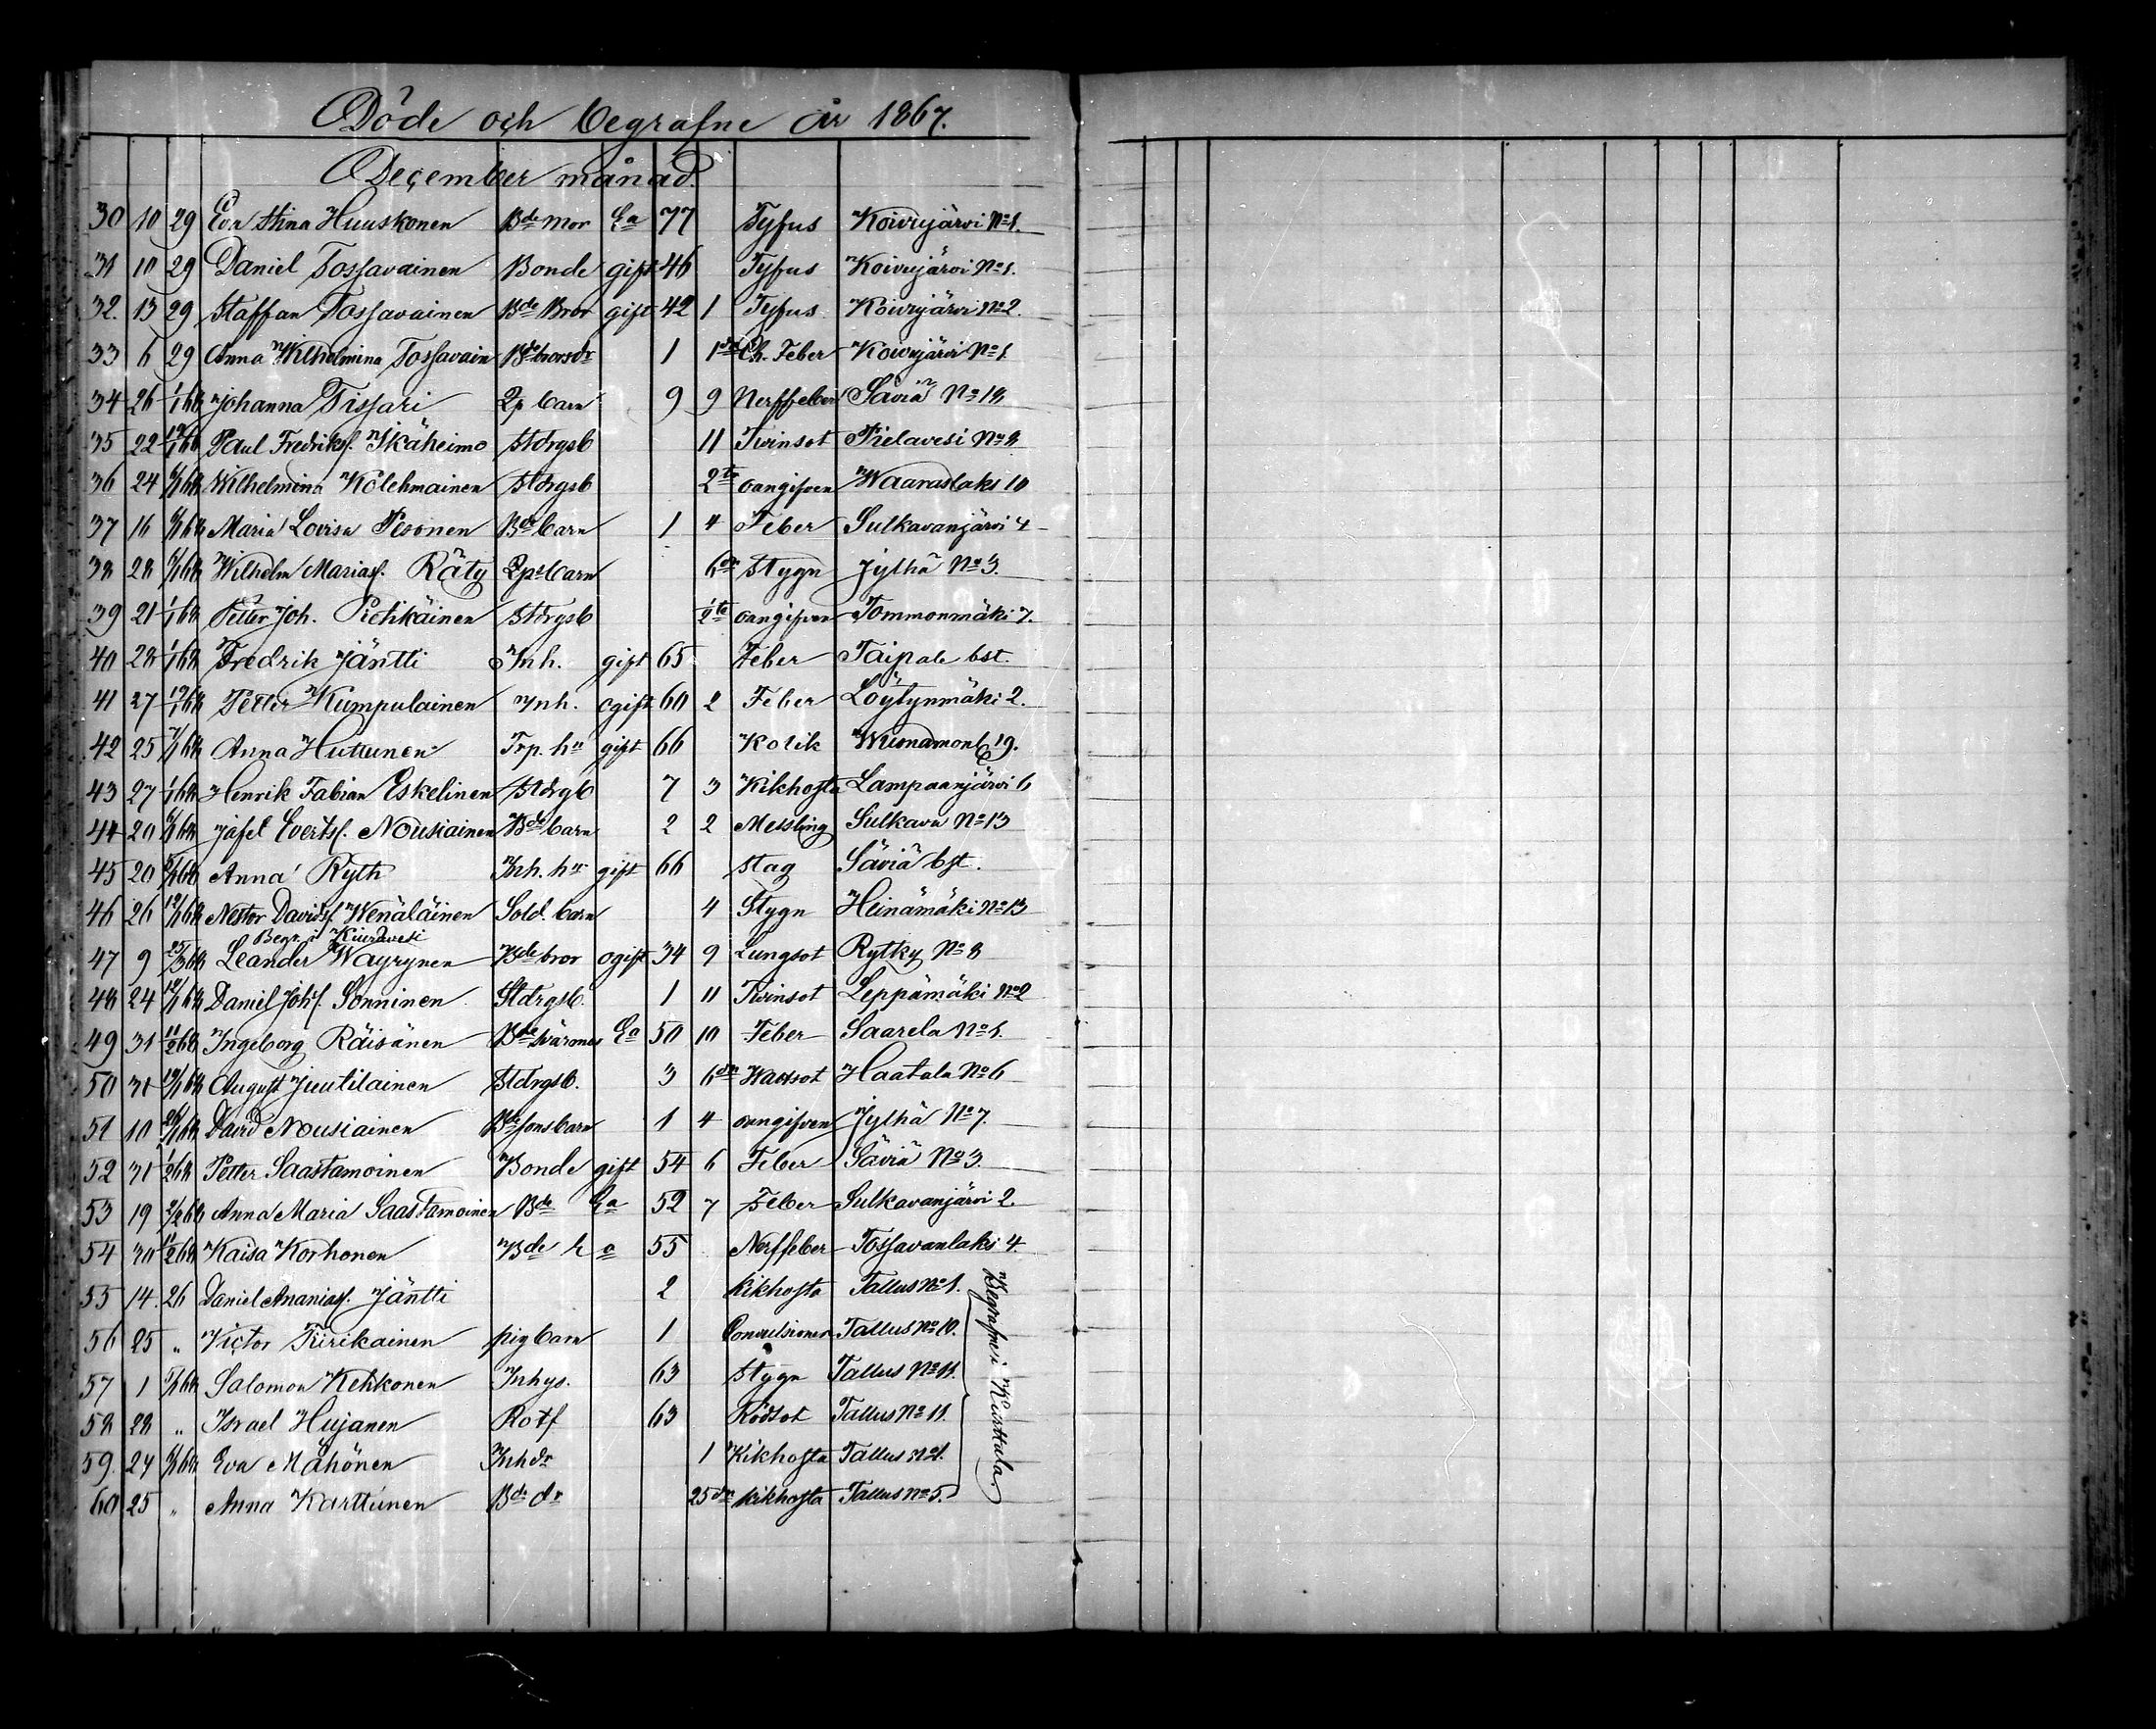 Döde och begrafne år 1867.
December månad.
30 10 29 Eva Stina Huuskonen Bde mor Ea 77 Tyfus Koivujärvi No 1.
31 10 29 Daniel Tossavainen Bonde gift 46 Tyfus Koivujärvi No 1.
32. 13 29 Staffan Tossavainen Bde Bror gift 42 1 Tyfus Koivujärvi No 2.
33 6 29 Anna Wilhelmina Tossavain Bde brorsdr 1 1 Ch. Feber Koivujärvi No 1.
34 26 1/1 68 Johanna Tissari Lp barn 9 9 Nerffeber Säviä No 18
35 22 12/1 68 Paul Fredriksf. Ikäheimo Stdrgsb 11 Tvinsot Pielavesi No 8
36 24 6/1 68 Wilhelmina Kolehmainen Stdrgsb 2 oangifven Waaraslaks 10
37 16 6/1 68 Maria Lovisa Pesonen Bde barn 1 4 Feber Sulkavanjärvi 4
38 28 6/1 68 Wilhelm Mariasf. Räty Lps barn 6 Stygn Jylhä No 3.
39 21 1/1 68 Petter Joh. Pietikäinen Stdrgsb 1/2 oangifven Tommonmäki 7.
40 28 1/1 68 Fredrik Jäntti Inh. gift 65 Feber Taipale bst.
41 27 19/1 68 Petter Kumpulainen Inh. ogift 60 2 Feber Löytynmäki 2.
42 25 7/1 68 Anna Huttunen Trp. hu gift 66 Kolik Wuonamonl 19.
43 27 1/1 68 Henrik Fabian Eskelinen Stdrgb 7 3 Kikhosta Lampaanjärvi 6
44 20 6/1 68 Josef Evertsf. Nousiainen Bde barn 2 2 Messling Sulkava No 13
45 20 6/1 68 Anna Ryth Inh. hu gift 66 Slag Säviä bst.
46 26 12/1 68 Nestor Davidsf. Wenäläinen Sold. barn 4 Stygn Heinämäki No 13
Begr. i Kiuruvesi
47 9 25/3 68 Leander Wäyrynen Bde bror ogift 34 9 Lungsot Rytky No 8
48 24 12/1 68 Daniel Johsf. Sonninen Stdrgsb. 1 11 Tvinsot Leppämäki No 2
49 31 11/2 68 Ingeborg Räisänen Bde svärmor Ea 50 10 Feber Saarela No 1.
50 31 19/1 68 August Juutilainen Stdrgsb. 3 6 Wattsot Haatala No 6
51 10 26/1 68 David Nousiainen Bde sons barn 1 4 oangifven Jylhä No 7.
52 31 1/2 68 Petter Saastamoinen Bonde gift 54 6 Feber Säviä No 3.
53 19 2/2 68 Anna Maria Saastamoinen Bde Ea 52 7 Feber Sulkavanjärvi 2.
54 30 11/2 68 Kaisa Korhonen Bde h a 55 Nerffeber Tossavanlaks 4
55 14. 26 Daniel Ananiasf. Jäntti 2 Kikhosta Tallus No 1.
56 25 " Victor Tiirikainen pig barn 1 Convulsioner Tallus No 10.
57 1 5/1 68 Salomon Kehkonen Inhys. 63 Stygn Tallus No 11.
58 28 " Israel Hujanen Rotf 63 Rödsot Tallus No 11.
59. 24 6/1 68 Eva Mähönen Inh dr 1 Kikhosta Tallus No 1.
60 25 " Anna Karttunen Bde dr 25 dr Kikhosta Tallus No 5.
Begrafne i Karttula.